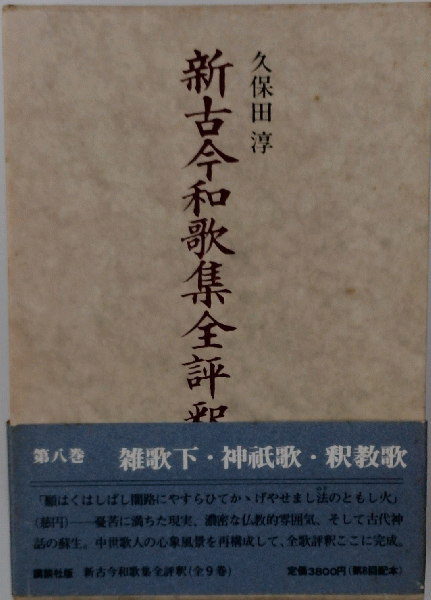 久保田淳
新古今和歌集全評釈
第八巻 雑歌下・神祇歌・釈教歌
「願はくはしばし闇路にやすらひてかゝげやせまし法のともし火」
(慈円)──憂苦に満ちた現実、濃密な仏教的雰囲気、そして古代神
話の蘇生。中世歌人の心象風景を再構成して、全歌評釈ここに完成。
講談社版 新古今和歌集全評釈(全9巻) 定価3800円(第8回配本)